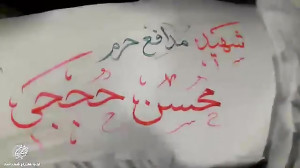 شهید مدافع حرم
محسن حججی